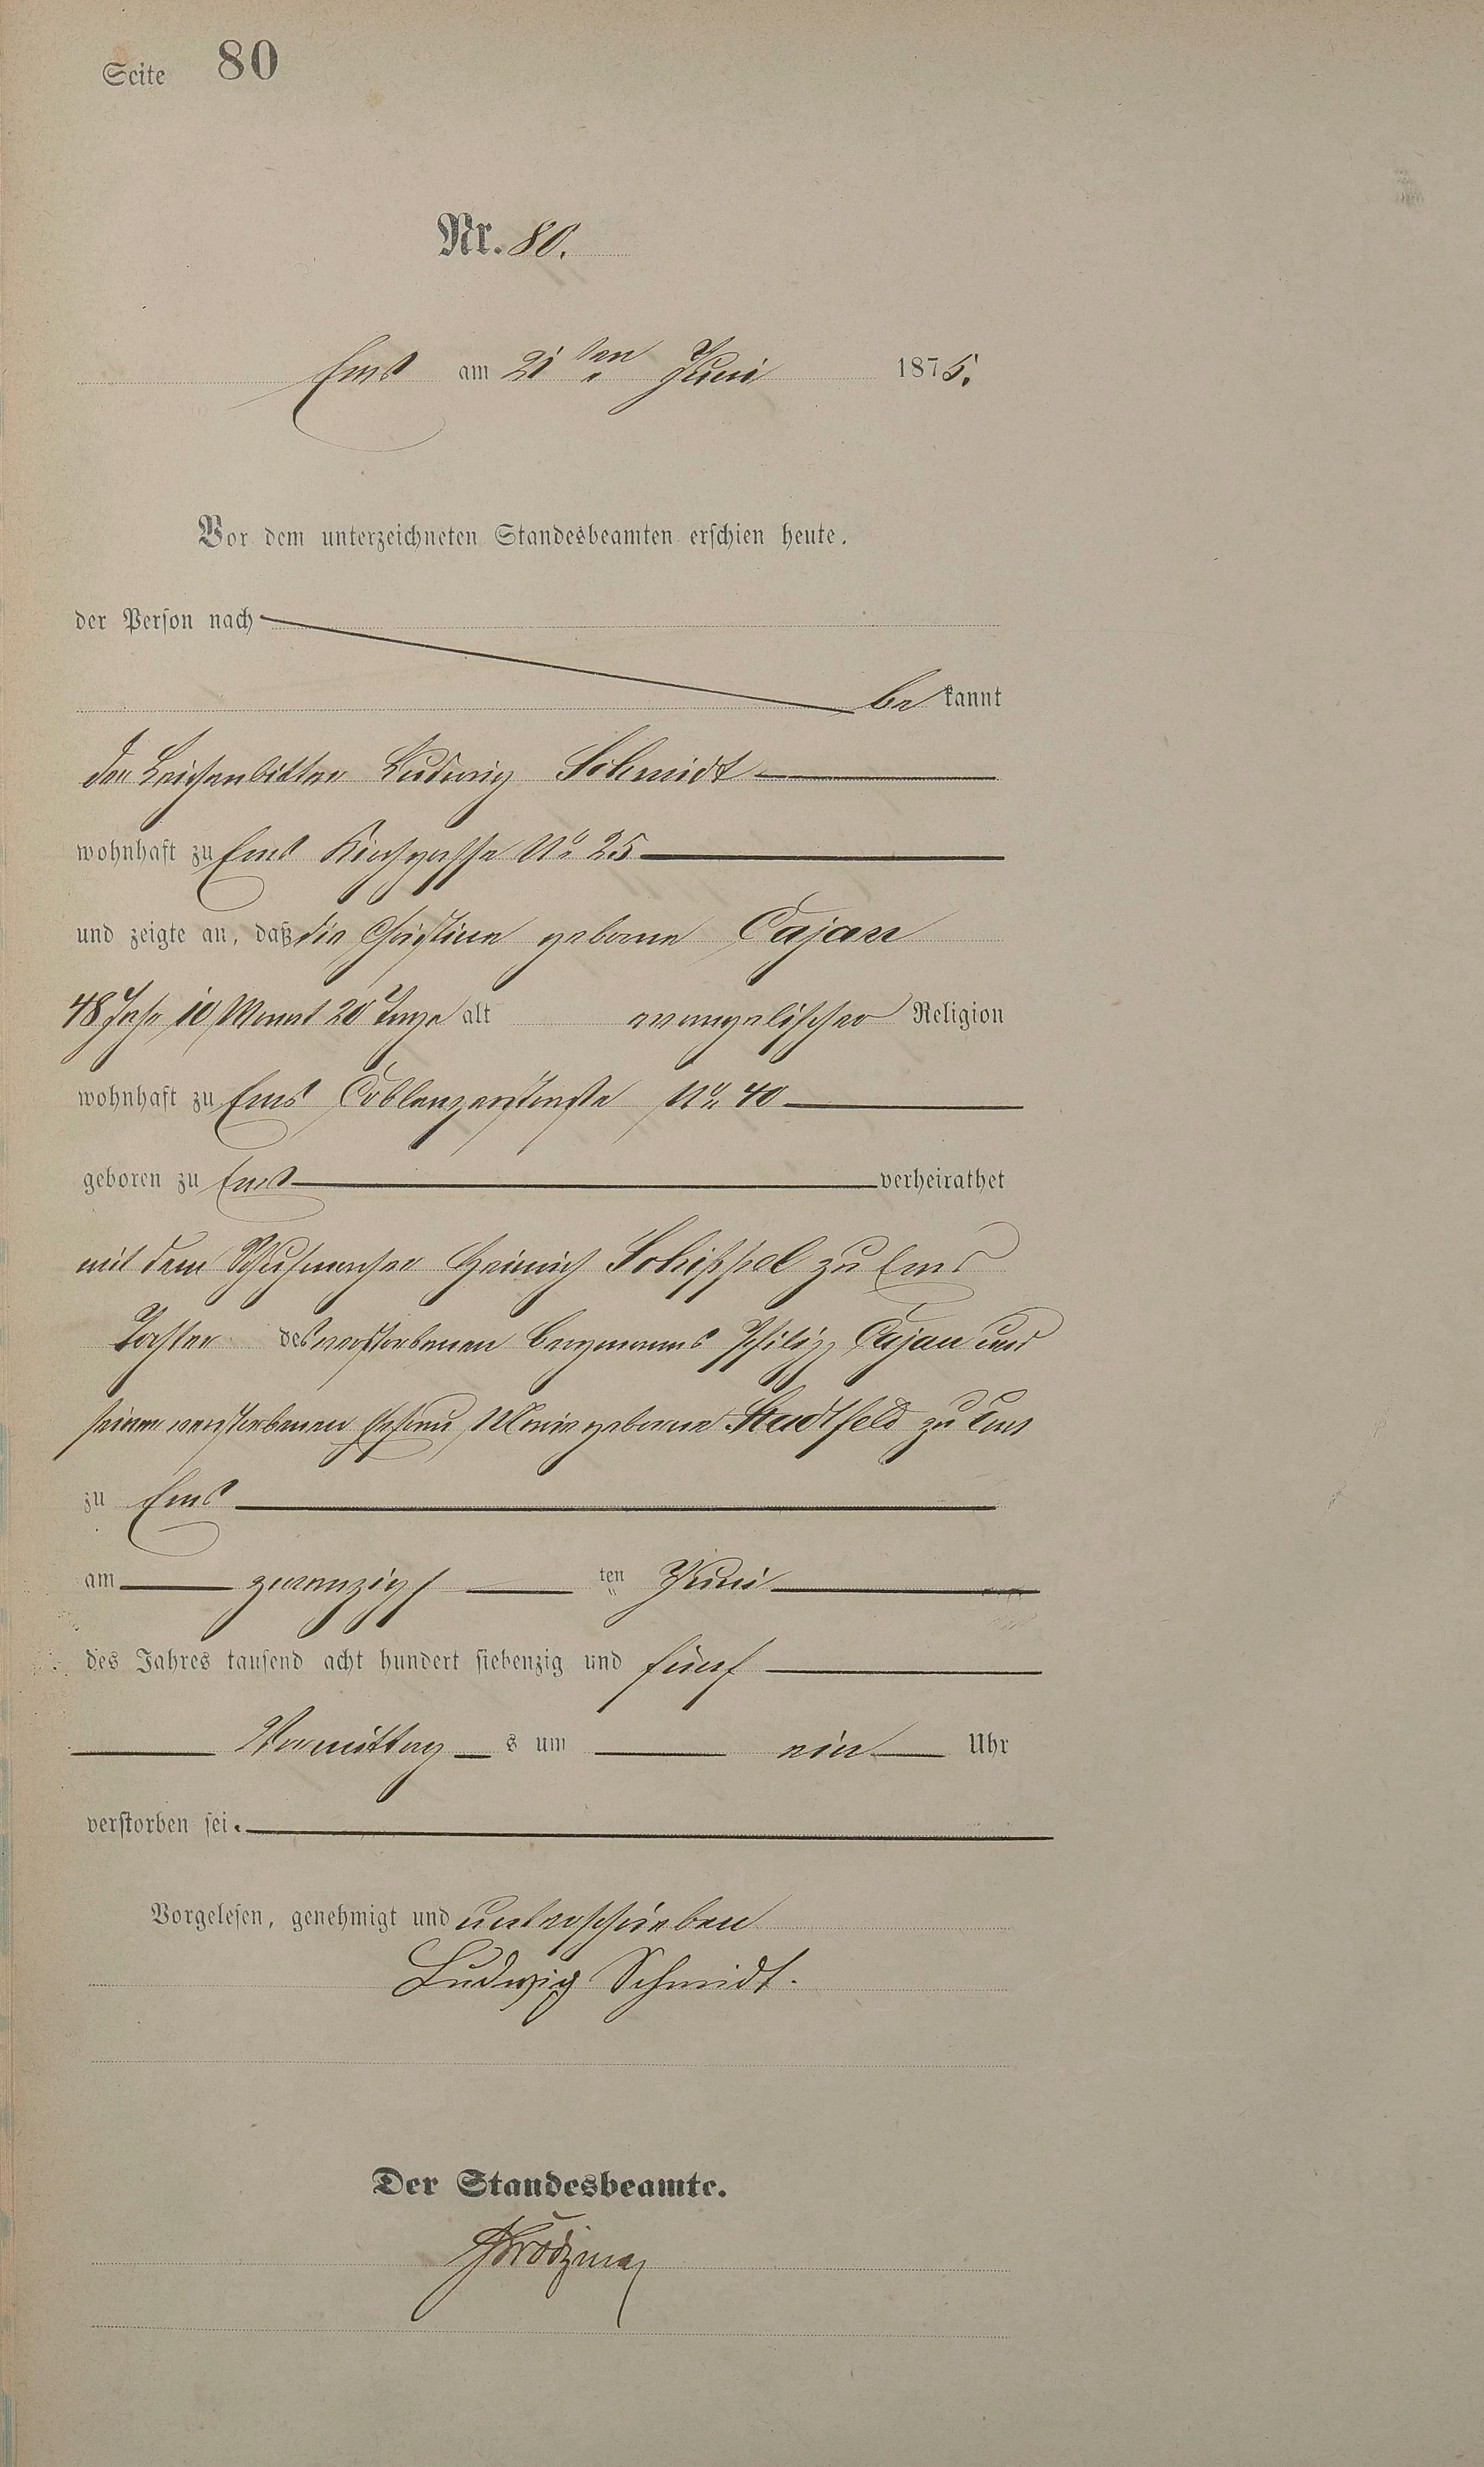 Seite 80
Nr. 80.
Ems am 21ten Juni 1875.
Vor dem unterzeichneten Standesbeamten erschien heute,
der Person nach
bekannt
der Leichenbitter Ludwig Schmidt
wohnhaft zu Ems Kirchgasse No 25
und zeigte an, daß die Christine geborne Cajan
48 Jahr 10 Monat 20 Tage alt evangelischer Religion
wohnhaft zu Ems Coblenzerstraße No 40
geboren zu Ems verheirathet
mit dem Schuhmacher Heinrich Schißpel zu Ems
Tochter des verstorbenen Bergmanns Philipp Cajan und
seiner verstorbenen Ehefrau Marie geborne Stadtfeld zu Ems
zu Ems
am zwanzigsten Juni
des Jahres tausend acht hundert siebenzig und fünf
Vormittags um ein Uhr
verstorben sei.
Vorgelesen, genehmigt und unterschrieben
Ludwig Schmidt.
Der Standesbeamte.